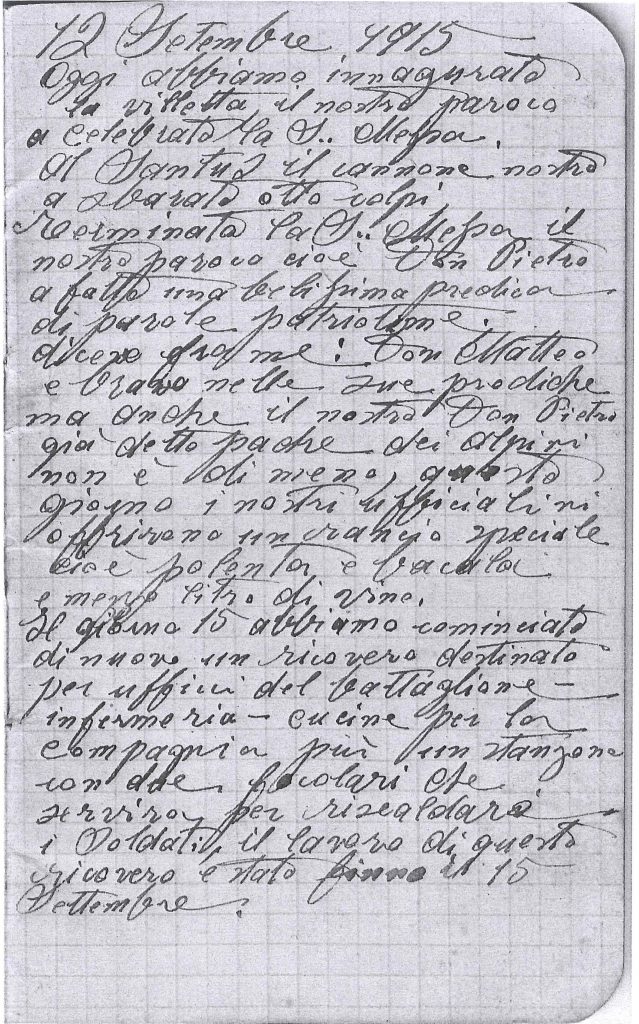 12 Setembre 1915
Oggi abbiamo innagurato
la villetta il nostro paroco
a celebrato la S.. Messa.
Al Santus il cannone nostro
a sbarato otto colpi
Terminata la S.. Messa il
nostro paroco cioè Don Pietro
a fatto una belissima predica
di parole patriotime.
dicevo fra me: Don Matteo
e bravo nelle sue prediche
ma anche il nostro Don Pietro
già detto padre dei alpini
non è di meno, questo
giorno i nostri ufficiali ni
offrirono un rancio speciale
cioè polenta e bacala
e mezzo litro di vino.
Il giorno 15 abbiamo cominciato
di nuovo un ricovero destinato
per uffici del battaglione –
infermeria – cucine per la
compagnia più un stanzone
con due focolari che
serviro per riscaldare
i Soldati, il lavoro di questo
ricovero e stato finno il 15
Settembre.